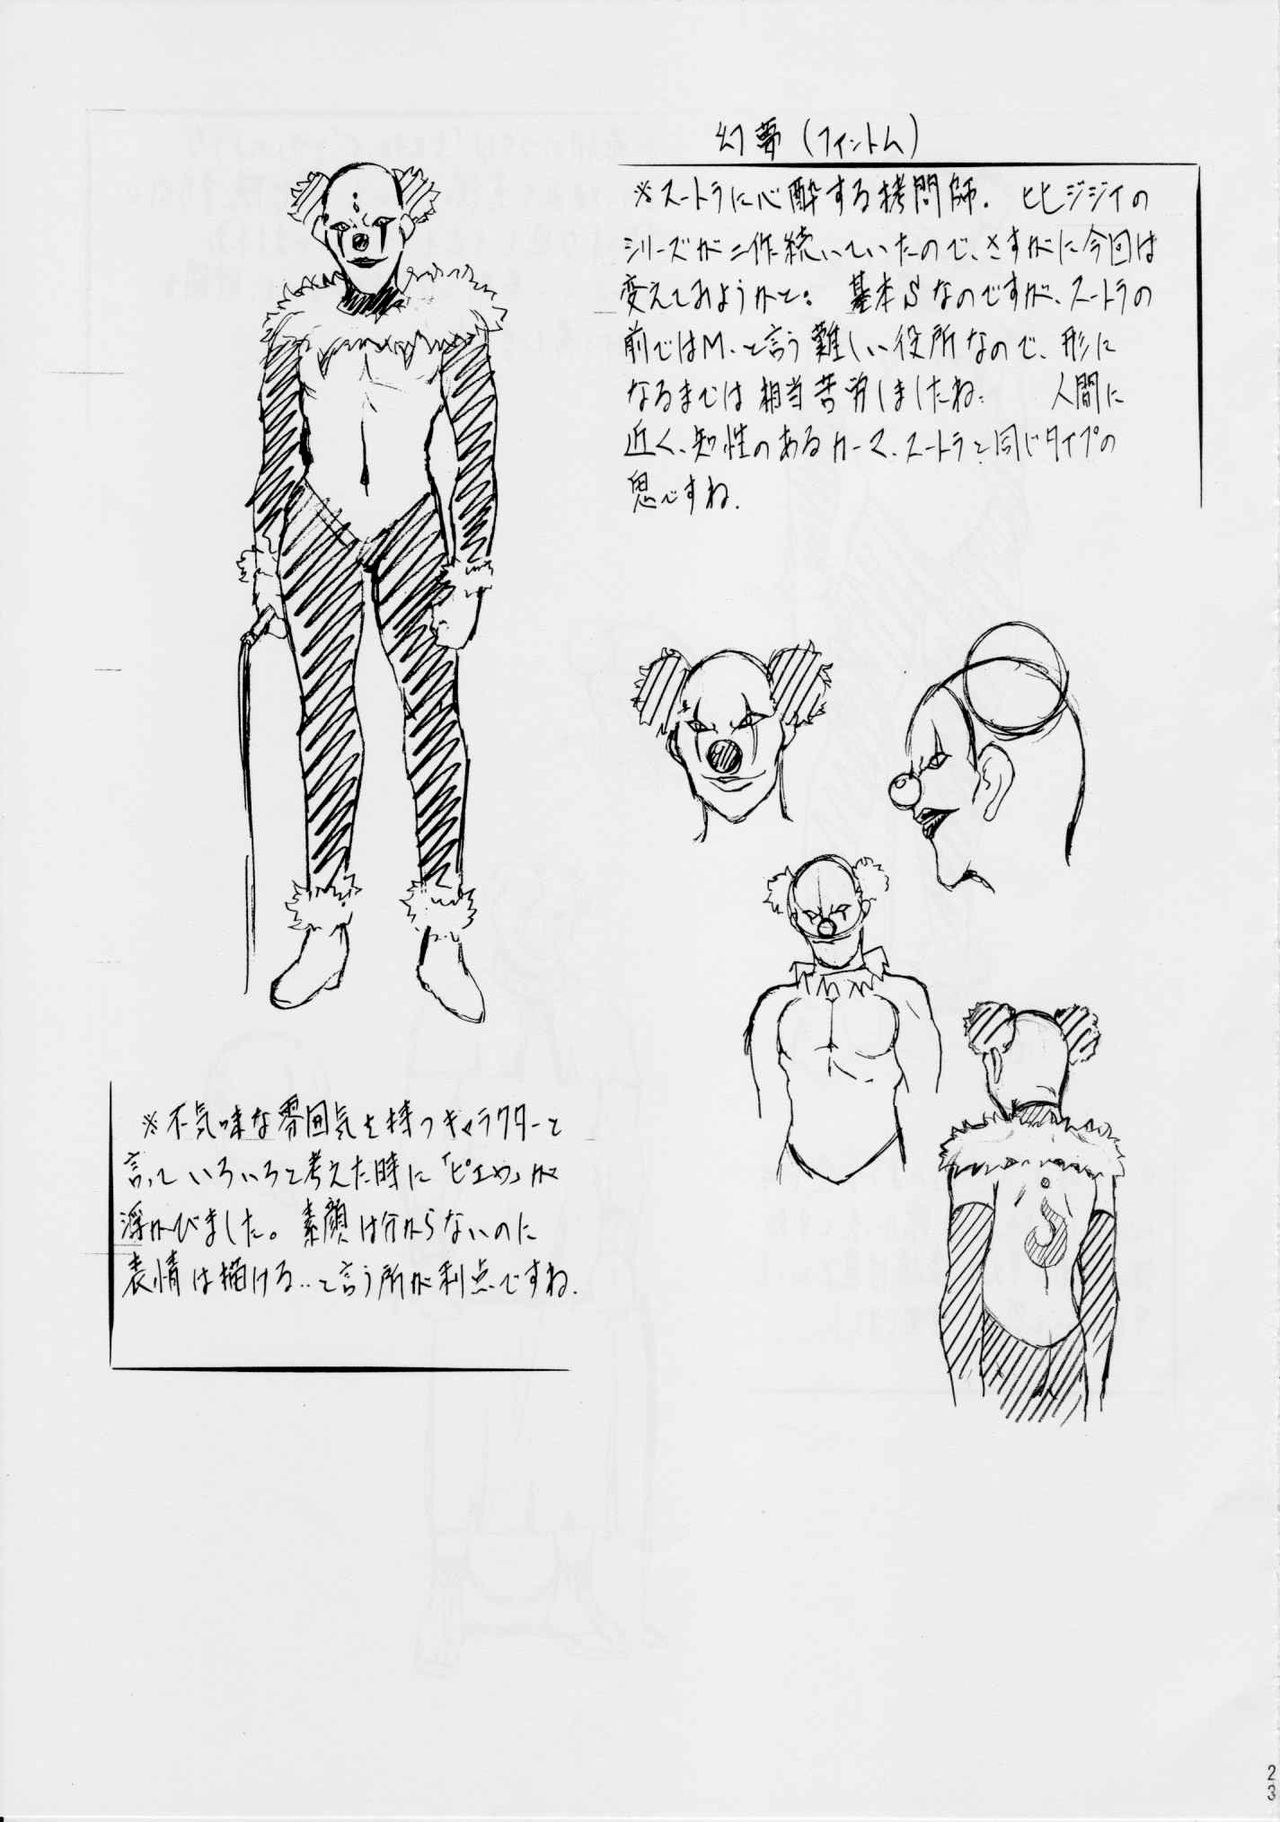 幻夢（ファントム）
※スートラに心酔する拷問師. ヒヒジジイの
シリーズが二作続いていたので、さすがに今回は
変えておようかと。 基本Sなのですが、スートラの
前ではM、と言う難しい役所なので、形に
なるまでは相当苦労しましたね. 人間に
近く、知性のあるカーマ、スートラと同じタイプの
鬼ですね.
※不気味な雰囲気を持つキャラクターと
言っていろいろと考えた時に「ピエロ」が
浮かびました。素顔は分からないのに
表情は描ける‥と言う所が利点ですね.
23